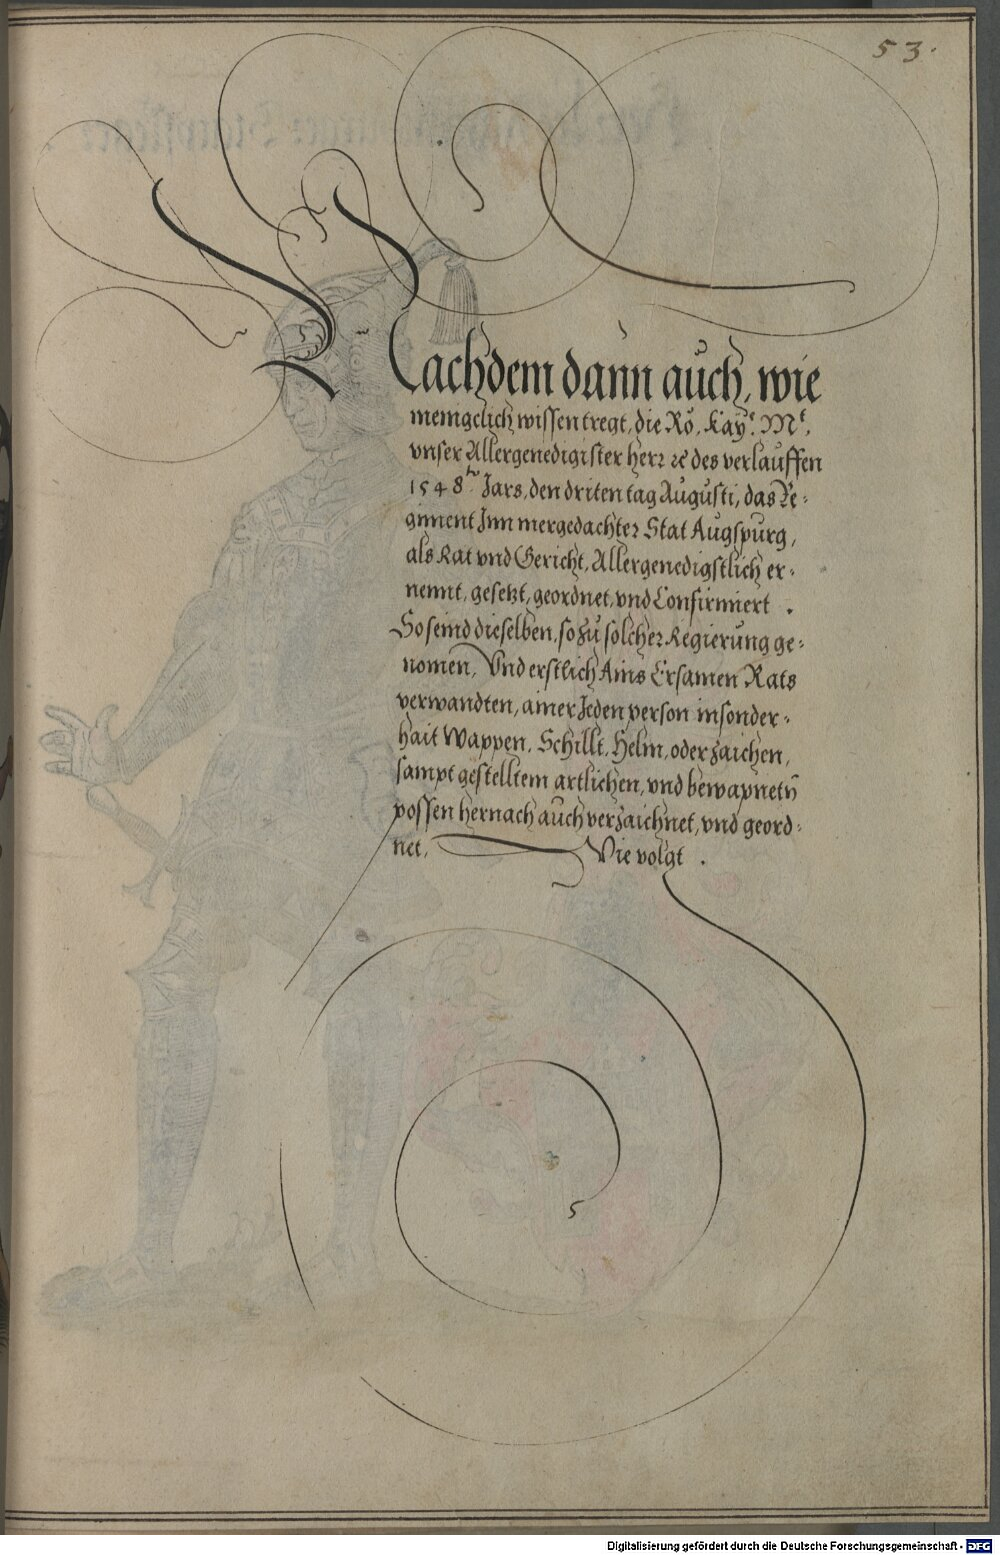 53.
Nachdem dann auch, wie
menigclich wissen tregt, die Rö. Kay. Mt.
vnser Allergenedigister herr ꝛc des verlauffen
1548ten Jars, den driten tag Augusti, das Re-
giment Inn mergedachter Stat Augspurg,
als Rat vnd Gericht, Allergenedigstlich er-
nennt, gesetzt, geordnet, vnd Confirmiert.
So seind dieselben, so zu solcher Regierung ge-
nomen, Vnd erstlich Ains Ersamen Rats
verwandten, ainer Jeden person insonder-
hait Wappen, Schillt, Helm, oder zaichen,
sampt gestelltem artlichen, vnd bewapnetn̄
possen hernach auch verzaichnet, vnd geord-
net, Wie volgt.
Digitalisierung gefördert durch die Deutsche Forschungsgemeinschaft - DFG